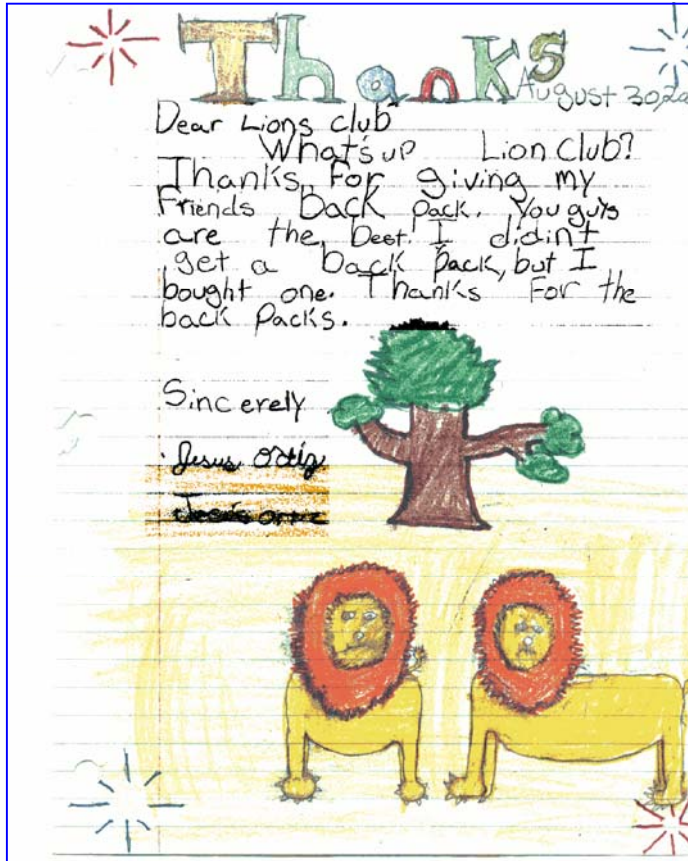 Thanks
August 30, 20
Dear Lions club
What's up Lion Club?
Thanks For giving my
Friends back pack. You guys
are the best! I didin't
get a back pack, but I
bought one. Thanks For the
back Packs.
Sincerely
Jesus Ortiz